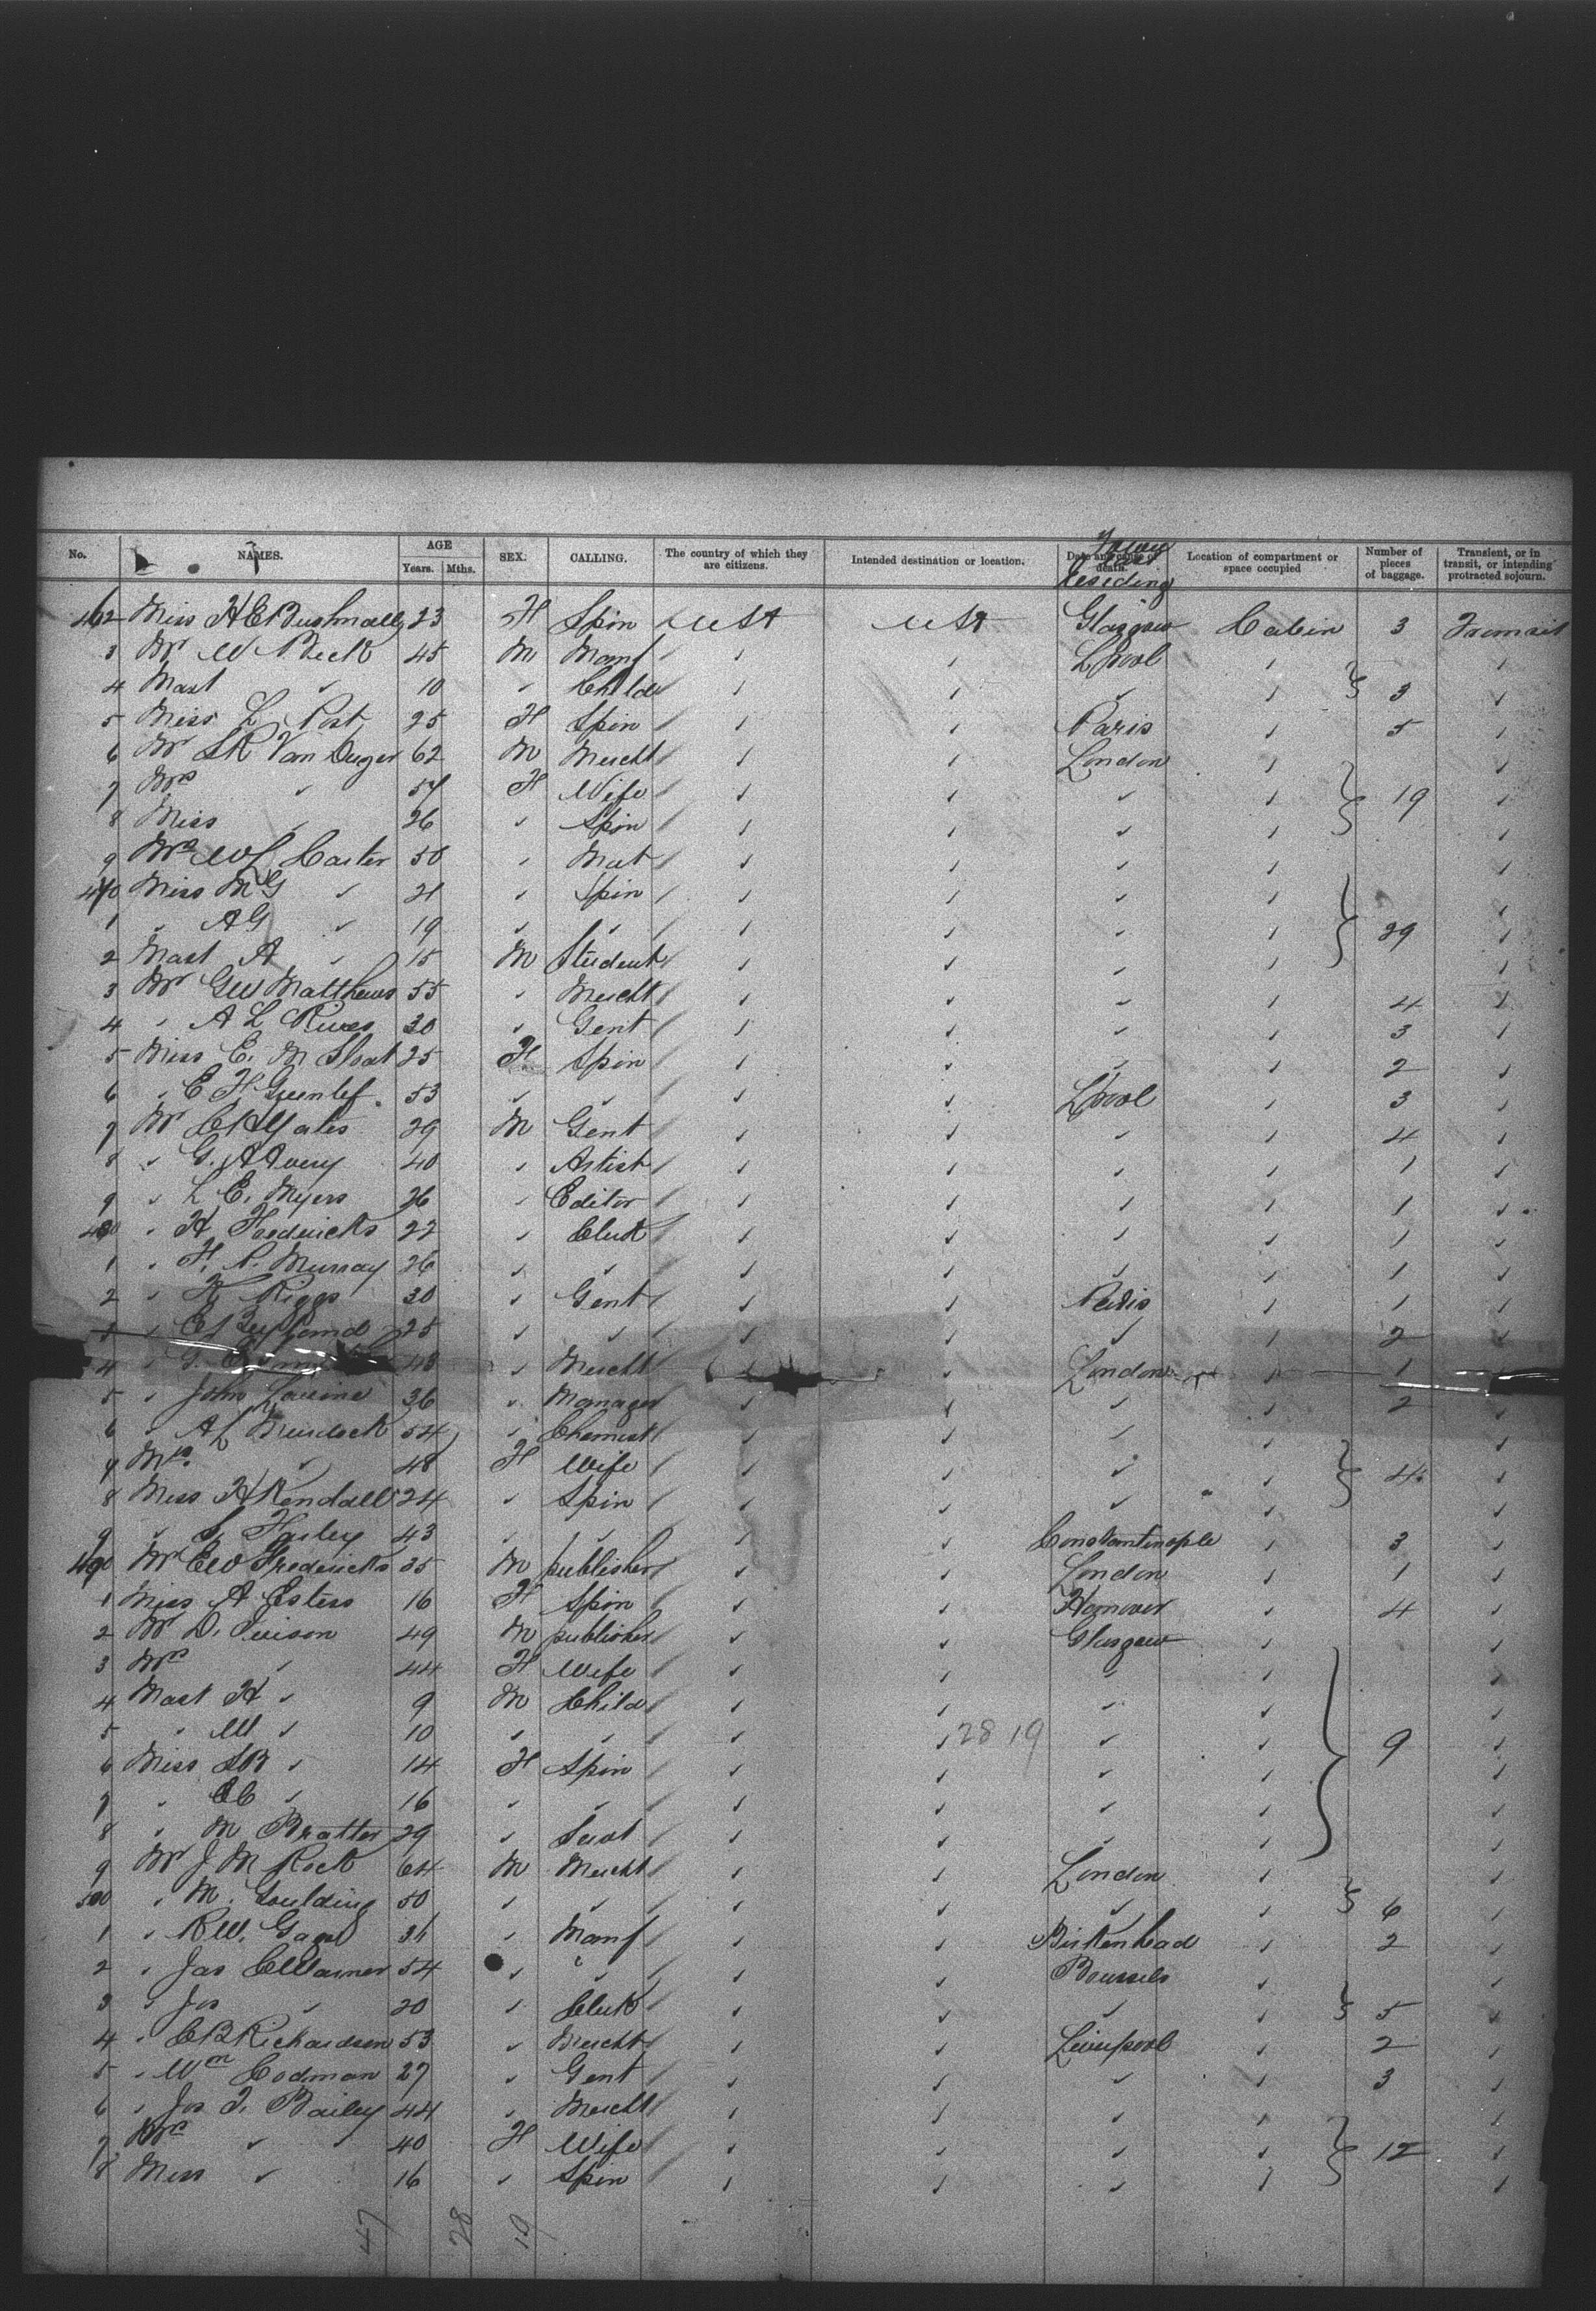 No. NAMES. AGE Years. Mths. SEX. CALLING. The country of which they are citizens. Intended destination or location. Date and cause of death. residing Location of compartment or space occupied Number of pieces of baggage. Transient, or in transit, or intending protracted sojourn.
462 Miss H E Bushnall 23 F Spin USA USA Glasgow Cabin 3 Transit
3 Mr W Peck 45 M Manf ✓ ✓ L'pool ✓ ✓
4 Mast ✓ 10 ✓ Child ✓ ✓ ✓ ✓ 3 ✓
5 Miss L Post 25 F Spin ✓ ✓ Paris ✓ 5 ✓
6 Mr S R Van Duzer 62 M Mercht ✓ ✓ London ✓ ✓
7 Mrs ✓ 54 F Wife ✓ ✓ ✓ ✓ 19 ✓
8 Miss ✓ 26 ✓ Spin ✓ ✓ ✓ ✓ ✓
9 Mrs W L Carter 50 ✓ Mat ✓ ✓ ✓ ✓ ✓
470 Miss M G ✓ 21 ✓ Spin ✓ ✓ ✓ ✓ ✓
1 ✓ A G ✓ 19 ✓ ✓ ✓ ✓ ✓ ✓ 29 ✓
2 Mast A ✓ 15 M Student ✓ ✓ ✓ ✓ ✓
3 Mr G W Matthews 55 ✓ Mercht ✓ ✓ ✓ ✓ 4 ✓
4 ✓ A L Rives 30 ✓ Gent ✓ ✓ ✓ ✓ 3 ✓
5 Miss E. M Sloat 25 F Spin ✓ ✓ ✓ ✓ 2 ✓
6 ✓ E F Greenlef 53 ✓ ✓ ✓ ✓ L'pool ✓ 3 ✓
7 Mr Yates 29 M Gent ✓ ✓ ✓ ✓ 4 ✓
8 ✓ G. A Avery 40 ✓ Artist ✓ ✓ ✓ ✓ 1 ✓
9 ✓ L E. Myers 26 ✓ Editor ✓ ✓ ✓ ✓ 1 ✓
480 ✓ H Fredericks 22 ✓ Clerk ✓ ✓ ✓ ✓ 1 ✓
1 ✓ F. P. Murray 26 ✓ ✓ ✓ ✓ ✓ ✓ 1 ✓
2 ✓ K Riggs 30 ✓ Gent ✓ ✓ Paris ✓ 1 ✓
3 ✓ 25 ✓ ✓ ✓ ✓ ✓ ✓ 2 ✓
4 ✓ 43 ✓ Mercht ✓ ✓ London ✓ 1 ✓
5 ✓ John Lavine 36 ✓ Manager ✓ ✓ ✓ ✓ 2 ✓
6 ✓ A L Murdock 54 ✓ Chemist ✓ ✓ ✓ ✓ ✓
7 Mrs ✓ 48 F Wife ✓ ✓ ✓ ✓ 4 ✓
8 Miss H Kendall 24 ✓ Spin ✓ ✓ ✓ ✓ ✓
9 ✓ Farley 43 ✓ ✓ ✓ ✓ Constantinople ✓ 3 ✓
490 Mr E W Fredericks 35 M publisher ✓ ✓ London ✓ 1 ✓
1 Miss A Esters 16 F Spin ✓ ✓ Hanover ✓ 4 ✓
2 Mr D. Ivison 49 M publisher ✓ ✓ Glasgow ✓ ✓
3 Mrs ✓ 44 F Wife ✓ ✓ ✓ ✓ ✓
4 Mast H ✓ 9 M Child ✓ ✓ ✓ ✓ ✓
5 ✓ W ✓ 10 ✓ ✓ ✓ ✓ 28 19 ✓ ✓ 9 ✓
6 Miss S B ✓ 14 F Spin ✓ ✓ ✓ ✓ ✓
7 ✓ ✓ 16 ✓ ✓ ✓ ✓ ✓ ✓ ✓
8 ✓ M Bratter 29 ✓ Servt ✓ ✓ ✓ ✓ ✓
9 Mr J M Rock 64 M Mercht ✓ ✓ London ✓ ✓
500 ✓ M. Goulding 50 ✓ ✓ ✓ ✓ ✓ ✓ 6 ✓
1 ✓ R W. 31 ✓ Manf ✓ ✓ Birkenhead ✓ 2 ✓
2 ✓ Jas C Warner 54 ✓ ✓ ✓ ✓ Brussels ✓ ✓
3 ✓ Jos ✓ 20 ✓ Clerk ✓ ✓ ✓ ✓ 5 ✓
4 ✓ C B Richardson 53 ✓ Mercht ✓ ✓ Liverpool ✓ 2 ✓
5 ✓ Wm Codman 27 ✓ Gent ✓ ✓ ✓ ✓ 3 ✓
6 ✓ Jos T. Bailey 44 ✓ Mercht ✓ ✓ ✓ ✓ ✓
7 Mrs ✓ 40 F Wife ✓ ✓ ✓ ✓ 12 ✓
8 Miss ✓ 16 ✓ Spin ✓ ✓ ✓ ✓ ✓
47 28 19